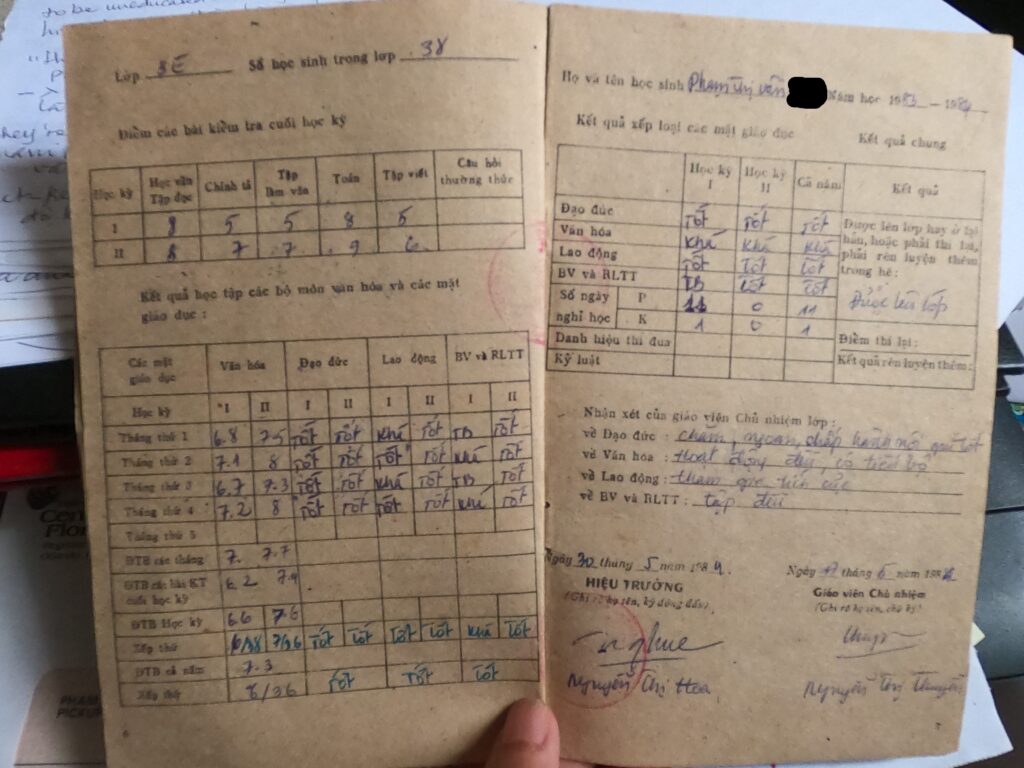 Lớp 3E Số học sinh trong lớp 38
Điểm các bài kiểm tra cuối học kỳ
Học kỳ Học vần Tập đọc Chính tả Tập làm văn Toán Tập viết Câu hỏi thường thức
I 8 5 5 8 5
II 8 7 7 9 6
Kết quả học tập các bộ môn văn hóa và các mặt
giáo dục :
Các mặt giáo dục Văn hóa Đạo đức Lao động BV và RLTT
Học kỳ I II I II I II I II
Tháng thứ 1 6.8 7.5 Tốt Tốt Khá Tốt TB Tốt
Tháng thứ 2 7.1 8 Tốt Tốt Tốt Tốt Khá Tốt
Tháng thứ 3 6.7 7.3 Tốt Tốt Khá Tốt TB Tốt
Tháng thứ 4 7.2 8 Tốt Tốt Tốt Tốt Khá Tốt
Tháng thứ 5
ĐTB các tháng 7. 7.7
ĐTB các bài KT cuối học kỳ 6.2 7.4
ĐTB Học kỳ 6.6 7.6
Xếp thứ 7/36 Tốt Tốt Tốt Tốt Khá Tốt
ĐTB cả năm 7.3
Xếp thứ 8/36 Tốt Tốt Tốt
6
Họ và tên học sinh Phạm Thị Vân Năm học 1983 – 1984
Kết quả xếp loại các mặt giáo dục Kết quả chung
Học kỳ I Học kỳ II Cả năm Kết quả
Đạo đức Tốt Tốt Tốt
Văn hóa Khá Khá Khá
Lao động Tốt Tốt Tốt
BV và RLTT TB Tốt Tốt
Số ngày nghỉ học P 11 0 11
K 1 0 1
Danh hiệu thi đua
Kỷ luật
Được lên lớp hay ở lại
hẳn, hoặc phải thi lại,
phải rèn luyện thêm
trong hè :
Được lên lớp
Điểm thi lại :
Kết quả rèn luyện thêm :
Nhận xét của giáo viên Chủ nhiệm lớp :
về Đạo đức : chăm, ngoan, chấp hành nội quy tốt
về Văn hóa : hoạt động đều, có tiến bộ
về Lao động : tham gia tích cực
về BV và RLTT : tập đều
Ngày 30 tháng 5 năm 1984
HIỆU TRƯỞNG
(Ghi rõ họ tên, ký đóng dấu)
Nguyễn Thị Hoa
Ngày tháng 5 năm 1984
Giáo viên Chủ nhiệm
(Ghi rõ họ tên, chữ ký)
Nguyễn Thị
7